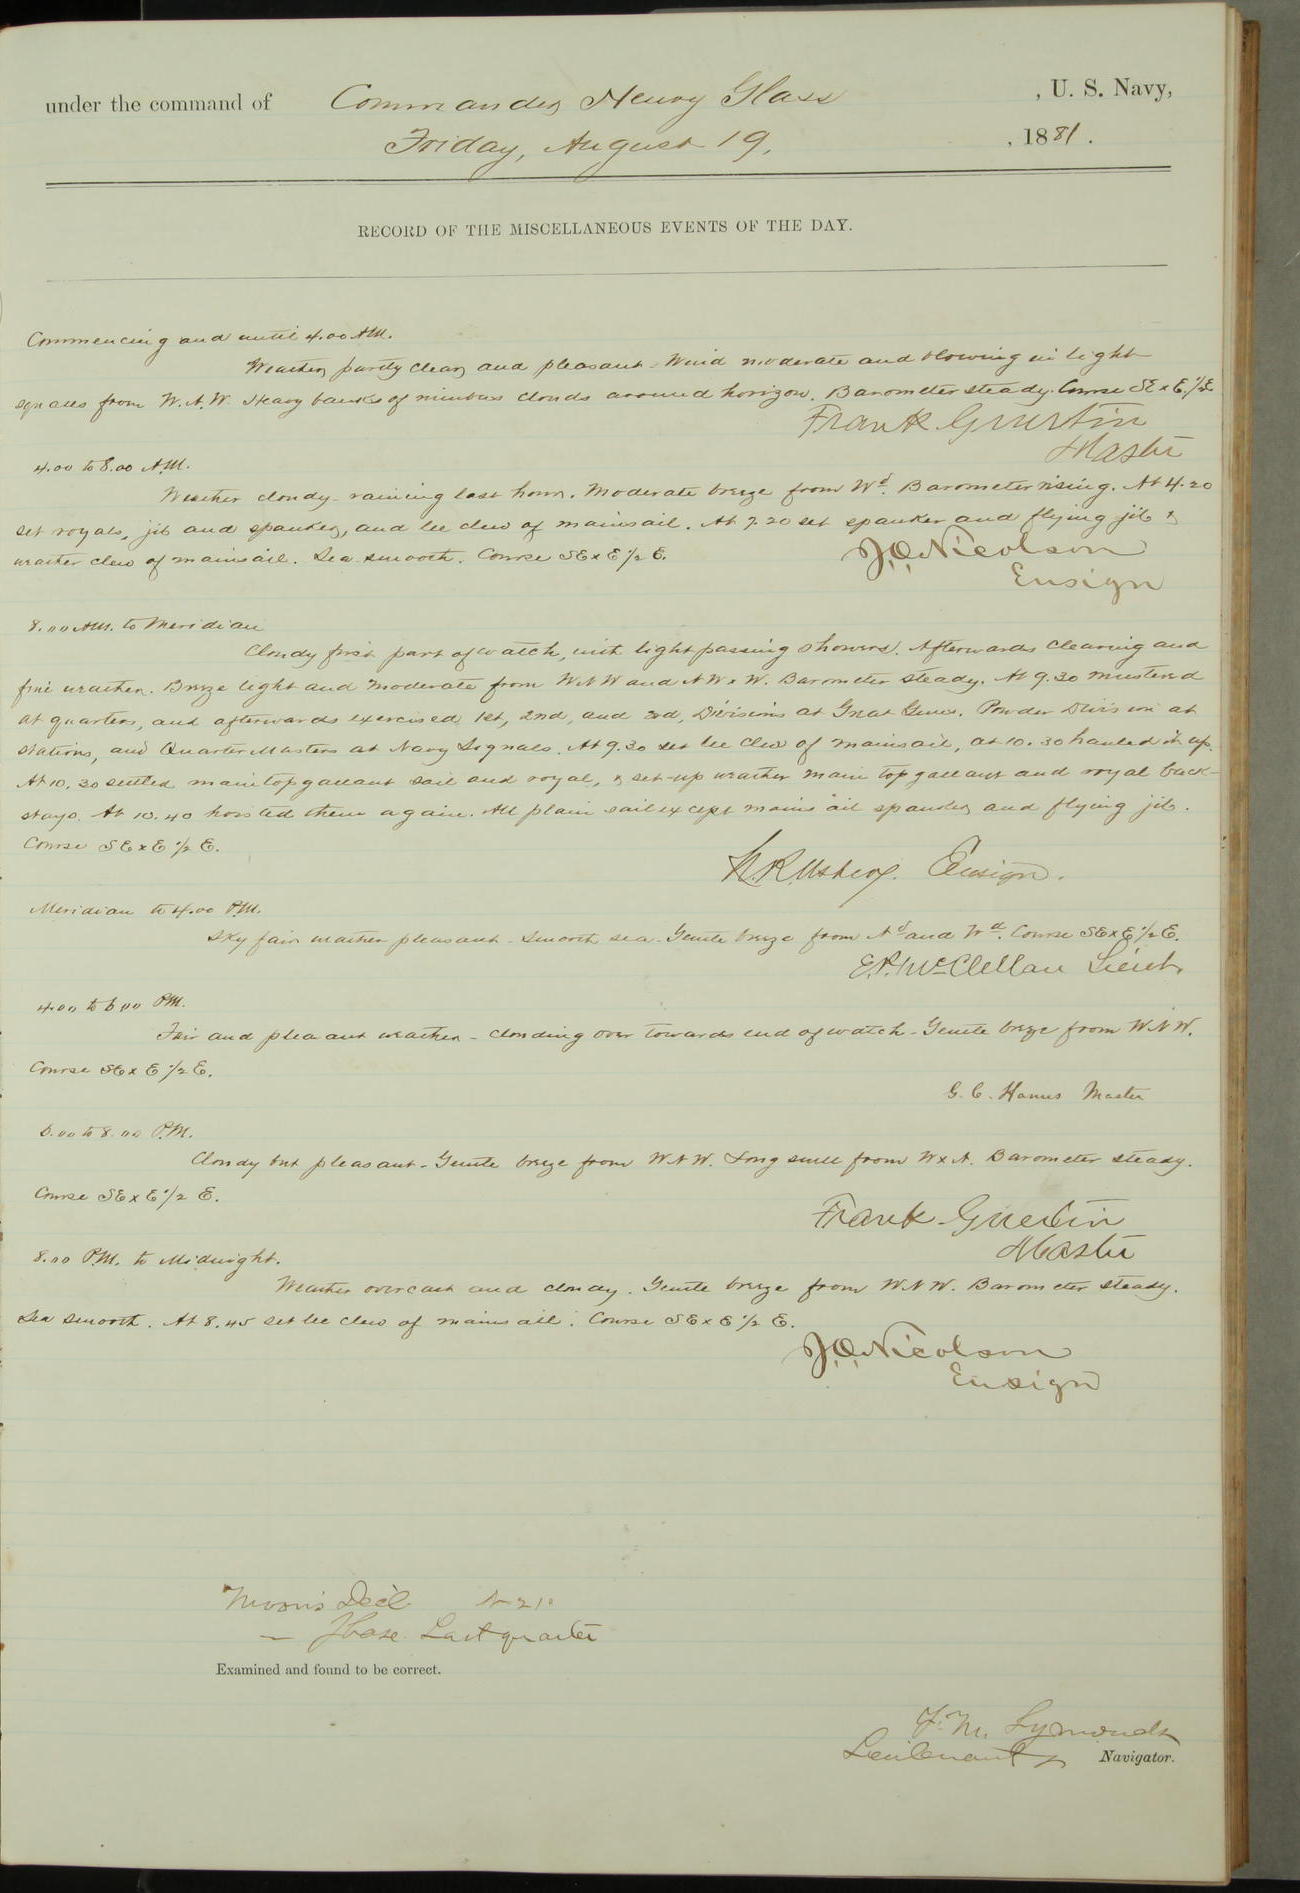 under the command of Commander Henry Glass , U. S. Navy,
Friday, August 19, , 1881.
RECORD OF THE MISCELLANEOUS EVENTS OF THE DAY.
Commencing and until 4.00 AM.
Weather partly clear, and pleasant - Wind moderate and blowing in light
squalls from W.N.W. Heavy banks of nimbus clouds around horizon. Barometer steady. Course SE x E 1/2 E.
Frank Guertin
Master
4.00 to 8.00 A.M.
Weather cloudy - raining last hour. Moderate breeze from Wd. Barometer rising. At 4.20
set royals, jib and spanker, and lee clew of mainsail. At 7.20 set spanker and flying jib &
weather clew of mainsail. Sea smooth. Course SE x E 1/2 E.
J.O. Nicolson
Ensign
8.00 AM. to Meridian
Cloudy first part of watch, with light passing showers. Afterwards clearing and
fine weather. Breeze light and moderate from WNW and NW x W. Barometer steady. At 9.30 mustered
at quarters, and afterwards exercised 1st, 2nd, and 3rd, Divisions at Great Guns. Powder Division at
stations, and QuarterMasters at Navy Signals. At 9.30 set lee clew of mainsail, at 10.30 hauled it up.
At 10.30 settled main topgallant sail and royal, & set-up weather main top gallant and royal back-
stays. At 10.40 hoisted them again. All plain sail except mainsail spanker, and flying jib.
Course SE x E 1/2 E.
N.R. Usher. Ensign.
Meridian to 4.00 P.M.
Sky fair weather pleasant - Smooth sea - Gentle breeze from Nd and Wd. Course SE x E 1/2 E.
E.P. McClellan Lieut.
4.00 to 6.00 P.M.
Fair and pleasant weather - clouding over towards end of watch - Gentle breeze from WNW.
Course SE x E 1/2 E.
G. C. Hanus Master
6.00 to 8.00 P.M.
Cloudy but pleasant - Gentle breeze from WNW. Long swell from W x N. Barometer steady.
Course SE x E 1/2 E.
Frank Guertin
Master
8.00 P.M. to Midnight.
Weather overcast and cloudy. Gentle breeze from WNW. Barometer steady.
Sea smooth. At 8.45 set lee clew of mainsail. Course SE x E 1/2 E.
J.O. Nicolson
Ensign
Moon's Decl. N 21°
— Phase Last quarter
Examined and found to be correct.
F. M. Symonds
Lieutenant & Navigator.